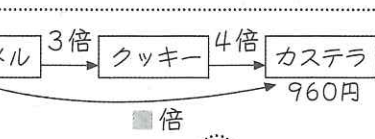 メル 3倍 クッキー 4倍 カステラ
960円
倍